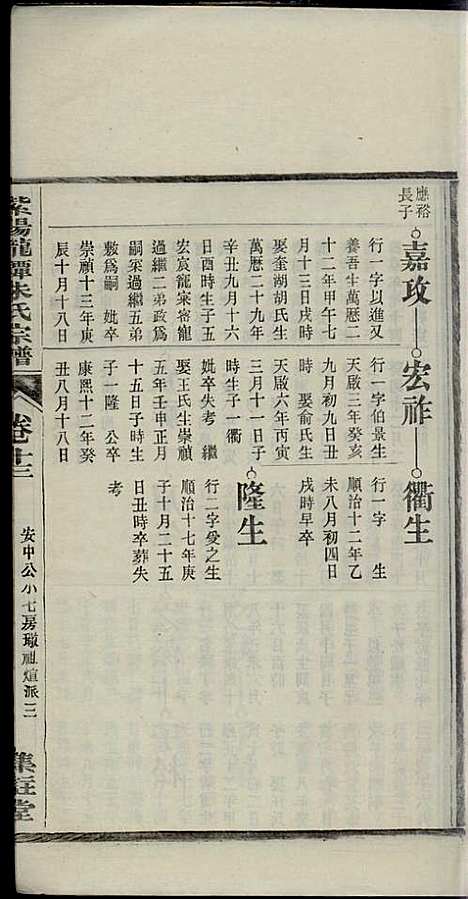 應裕
長子
嘉攻
行一字以進又
善吾生萬曆二
十二年甲午七
月十三日戌時
娶奎湖胡氏生
萬曆二十九年
辛丑九月十六
日酉時生子五
宏宸龍寀睿寵
過繼二弟政爲
嗣寀過繼五弟
敷爲嗣 妣卒
崇禎十三年庚
辰十月十八日
宏祚
行一字伯景生
天啟三年癸亥
九月初九日丑
時 娶俞氏生
天啟六年丙寅
三月十一日子
時生子一衢
妣卒失考 繼
娶王氏生崇禎
五年壬申正月
十五日子時生
子一隆 公卒
康熙十二年癸
丑八月十八日
衢生
行一字 生
順治十二年乙
未八月初四日
戌時早卒
隆生
行二字愛之生
順治十七年庚
子十月二十五
日丑時卒葬失
考
紫陽龍潭朱氏宗譜
卷十三
安中公小七房璈祖煊派三
集莊堂